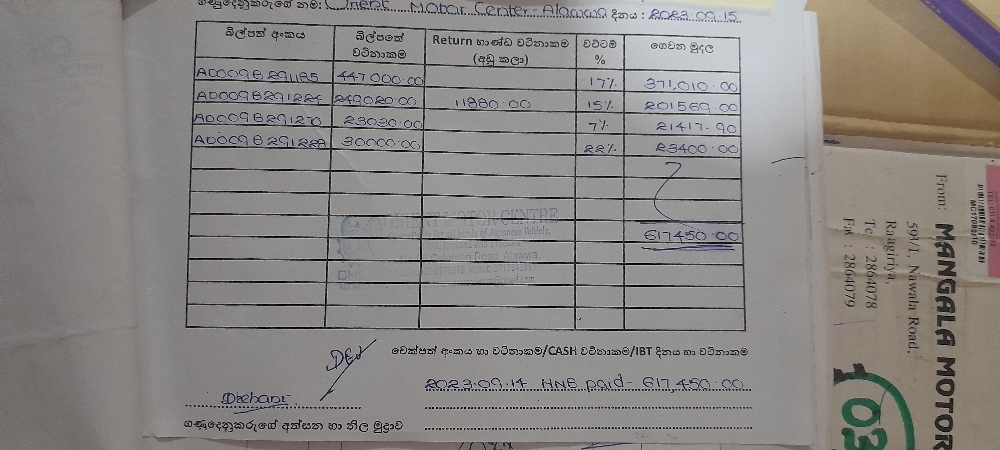 ගණුදෙනුකරුගේ නම: Orient Motor Center - Alawwa දිනය : 2023.09.15
බිල්පත් අංකය බිල්පතේ වටිනාකම Return භාණ්ඩ වටිනාකම (අඩු කලා) වට්ටම % ගෙවන මුදල
AD009B291185 447000.00 17% 371,010.00
AD009B291224 249020.00 11880.00 15% 201569.00
AD009B291270 23030.00 7% 21417.90
AD009B291228 30000.00 22% 23400.00
ORIENT MOTOR CENTRE
Japanese Vehicle,
Road, Alawwa.
617450.00
චෙක්පත් අංකය හා වටිනාකම/CASH වටිනාකම/IBT දිනය හා වටිනාකම
2023.09.14 HNB paid - 617,450.00
ගණුදෙනුකරුගේ අත්සන හා නිල මුද්‍රාව
From: MANGALA MOTOR
59/1, Nawala Road,
Rajagiriya,
Te : 2864078
Fax : 2864079
03